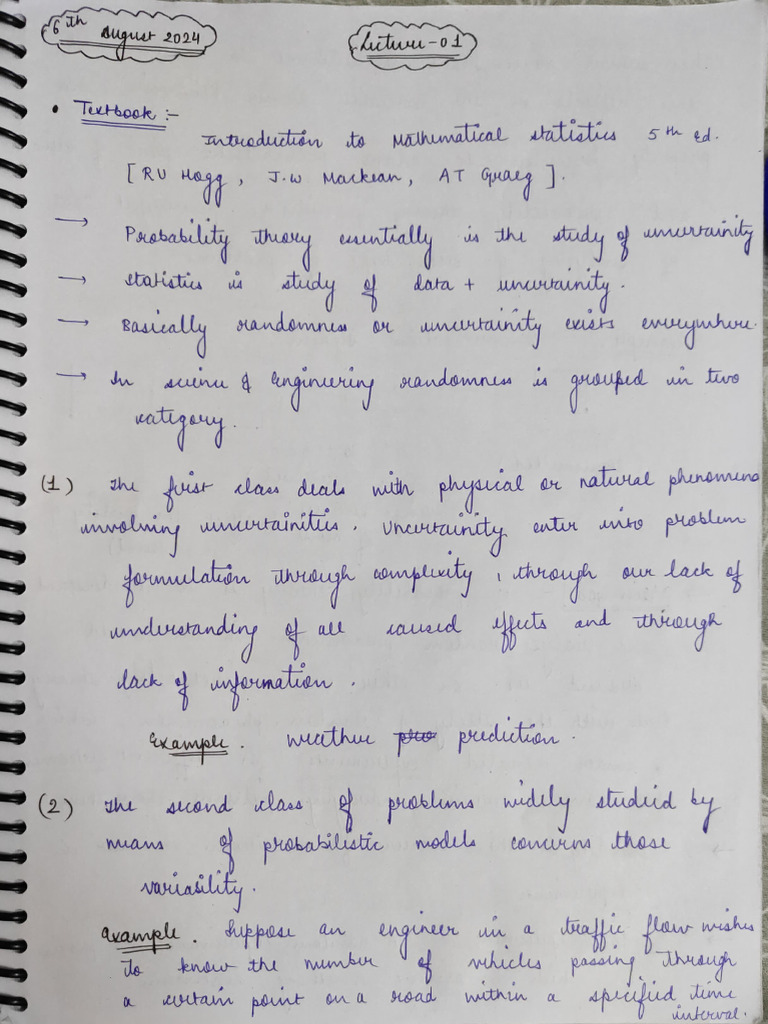 6th August 2024
Lecture-01
• Textbook :-
Introduction to Mathematical Statistics 5th Ed.
[ RV Hogg, J.W Mackean, AT Graeg ].
→ Probability theory essentially is the study of uncertainity
→ Statistics is study of data + uncertainity.
→ Basically randomness or uncertainity exists everywhere.
→ In science & Engineering randomness is grouped in two
category.
(1) The first class deals with physical or natural phenomena
involving uncertainities. Uncertainity enter into problem
formulation through complexity, through our lack of
understanding of all caused effects and through
lack of information.
Example. Weather prediction.
(2) The second class of problems widely studied by
means of probabilistic models concerns those
variability.
Example. Suppose an engineer in a traffic flow wishes
to know the number of vehicles passing through
a certain point on a road within a specified time
interval.